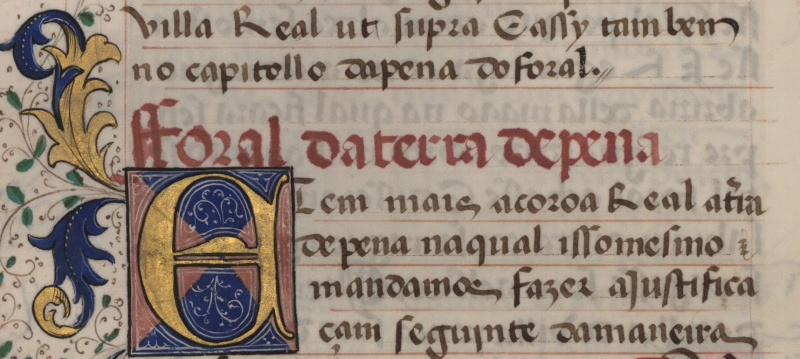 villa Real ut supra E assy tambem
no capitollo da pena do foral.
fforal da terra de pena
E Tem mais a coroa Real a t̃ra
de pena na qual isso mesmo
mandamos fazer a Justifica
çam seguinte da maneira